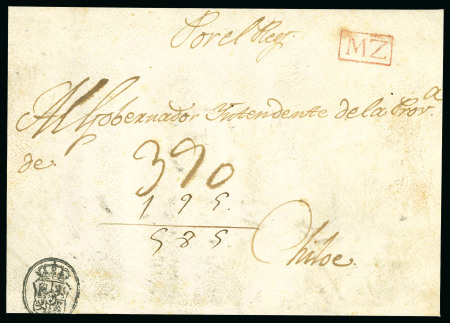 Por el Rey.
MZ
Al Gobernador Yntendente de la Prov.ª
de
390
195.
585.
Chiloe.